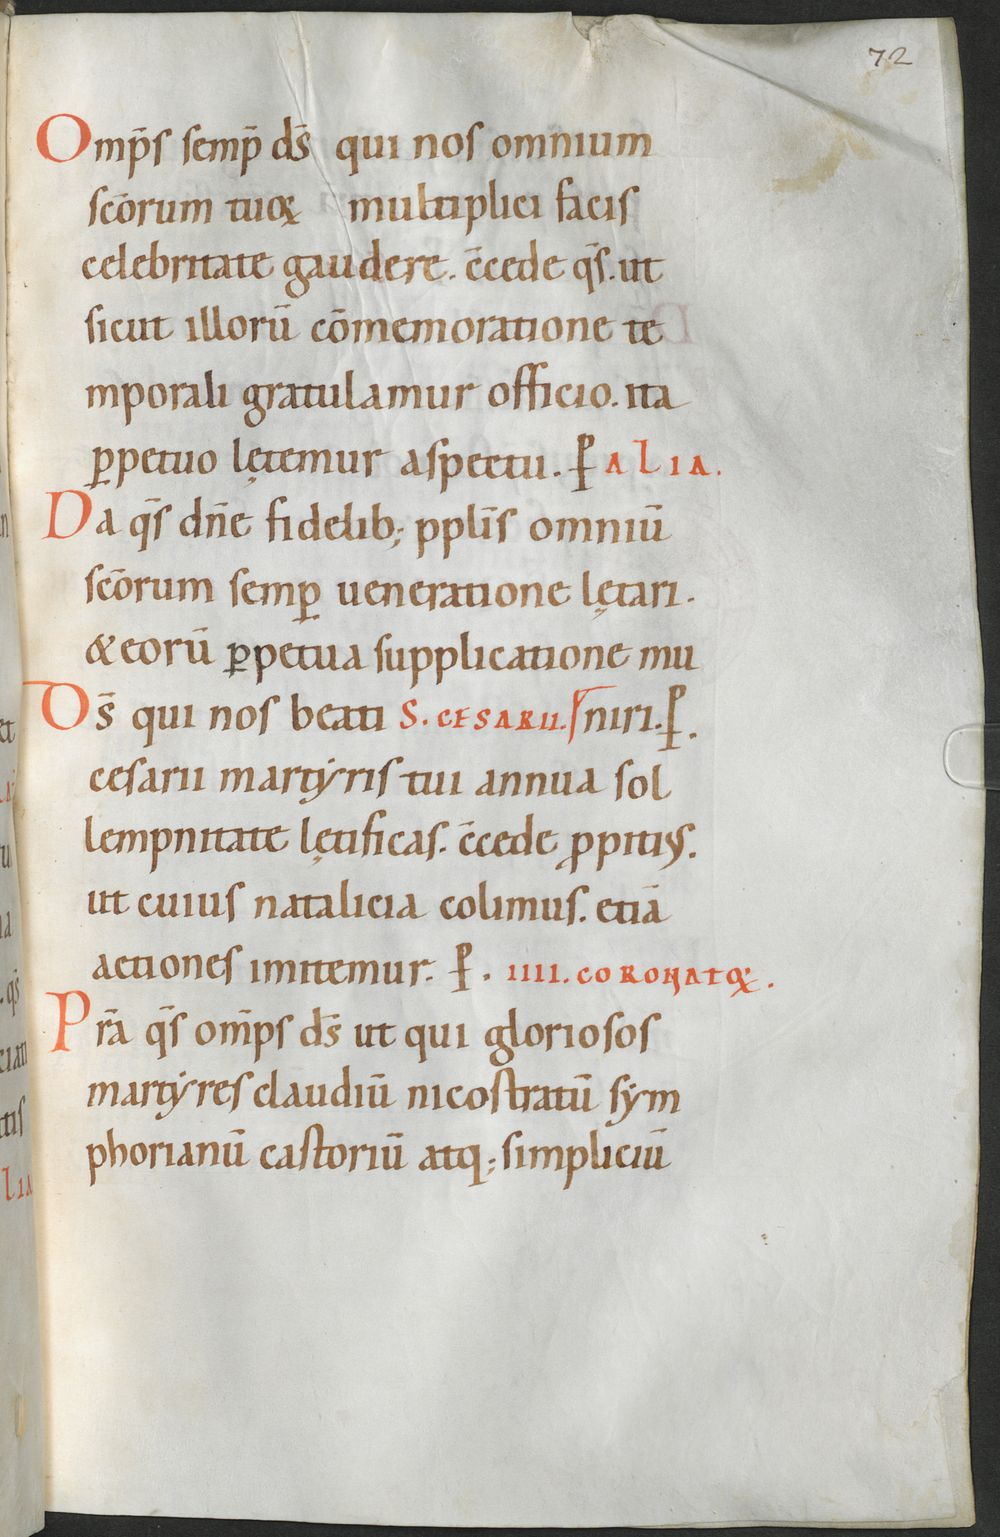 72
Omp̄s semp̄ ds̄ qui nos omnium
sc̄orum tuoꝝ multiplici facis
celebritate gaudere. c̄cede qs̄. ut
sicut illorū cōmemoratione te
mporali gratulamur officio. ita
ꝑpetuo lętemur aspectu. P̄ ALIA.
Da qs̄ dn̄e fidelib; ppl̄is omniū
sc̄orum semꝑ ueneratione lętari.
& eorū ꝑpetua supplicatione mu
Ds̄ qui nos beati S. CESARII. niri. P̄.
cesarii martẏris tui annua sol
lempnitate lętificas. c̄cede ꝓpitiꝰ.
ut cuius natalicia colimus. etiā
actiones imitemur. P̄. IIII. CORONATOꝜ.
Pr̄a qs̄ om̄ps ds̄ ut qui gloriosos
martẏres claudiū nicostratū sẏm
phorianū castoriū atq; simpliciū